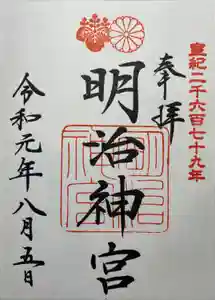 皇紀二千六百七十九年
奉拝
明治神宮
令和元年八月五日